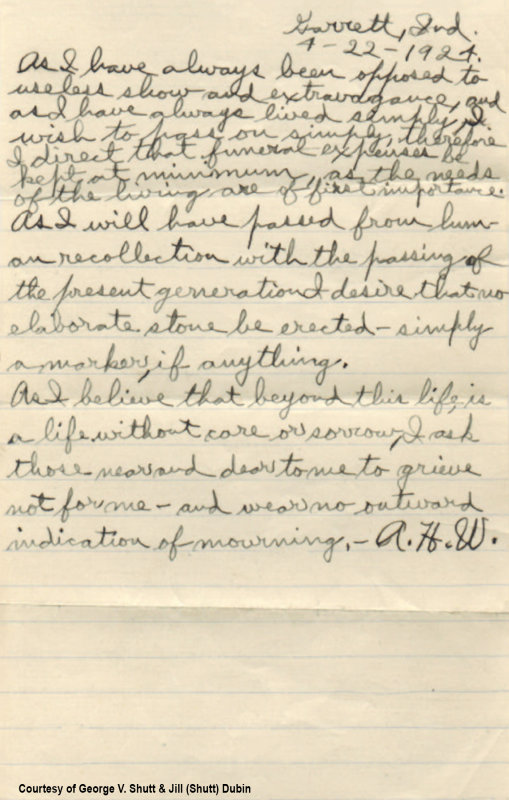 Garrett, Ind.
4-22-1924.
As I have always been opposed to
useless show and extravagance, and
as I have always lived simply, I
wish to pass on simply, therefore
I direct that funeral expenses be
kept at minimum, as the needs
of the living are of first importance.
As I will have passed from hum-
an recollection with the passing of
the present generation I desire that no
elaborate stone be erected - simply
a marker, if anything.
As I believe that beyond this life, is
a life without care or sorrow, I ask
those near and dear to me to grieve
not for me - and wear no outward
indication of mourning. - A. H. W.
Courtesy of George V. Shutt & Jill (Shutt) Dubin